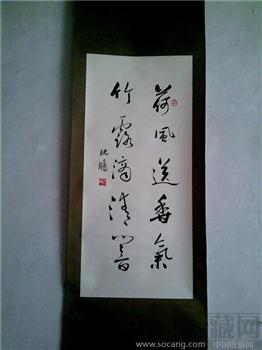 荷風送香氣
竹露滴清響
沈鵬
藏网
中国收藏网
www.socang.com